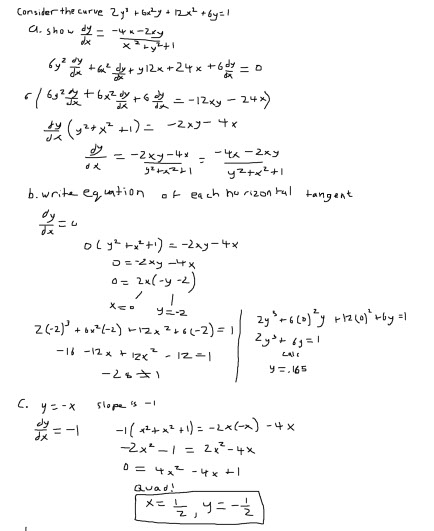 Consider the curve 2y³ + 6x²y + 12x² + 6y = 1
a. show dy/dx = (-4x - 2xy)/(x² + y² + 1)
6y² dy/dx + 6x² dy/dx + y12x + 24x + 6 dy/dx = 0
6 / (6y² dy/dx + 6x² dy/dx + 6 dy/dx = -12xy - 24x)
dy/dx (y² + x² + 1) = -2xy - 4x
dy/dx = (-2xy - 4x)/(y² + x² + 1) = (-4x - 2xy)/(y² + x² + 1)
b. write equation of each horizontal tangent
dy/dx = 0
0(y² + x² + 1) = -2xy - 4x
0 = -2xy - 4x
0 = 2x(-y - 2)
x = 0 y = -2
2(-2)³ + 6x²(-2) + 12x² + 6(-2) = 1
-16 - 12x + 12x² - 12 = 1
-28 ≠ 1
2y³ + 6(0)²y + 12(0)² + 6y = 1
2y³ + 6y = 1
calc
y = .165
C. y = -x slope is -1
dy/dx = -1 -1(x² + x² + 1) = -2x(-x) - 4x
-2x² - 1 = 2x² - 4x
0 = 4x² - 4x + 1
Quad!
x = 1/2, y = -1/2